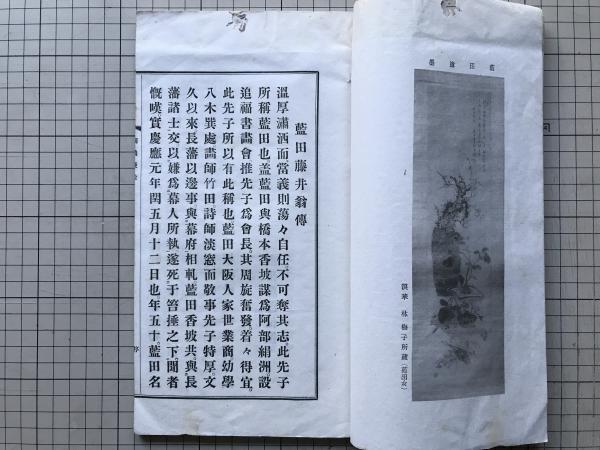 藍田遺墨
浪華 林 梅子所蔵
藍田藤井翁傳
溫厚瀟洒而當義則蕩々自任不可奪其志此先子
所稱藍田也盖藍田與橋本香坡謀爲阿部絹洲設
追福書畵會推先子爲會長其周旋奮發着々得宜
此先子所以有此稱也藍田大阪人家世業商幼學
八木巽處畵師竹田詩師淡窓而敬事先子特厚文
久以來長藩以邊事與幕府相軋藍田香坡共與長
藩諸士交以嫌爲幕人所執遂死于笞捶之下聞者
慨嘆實慶應元年閏五月十二日也年五十藍田名
序